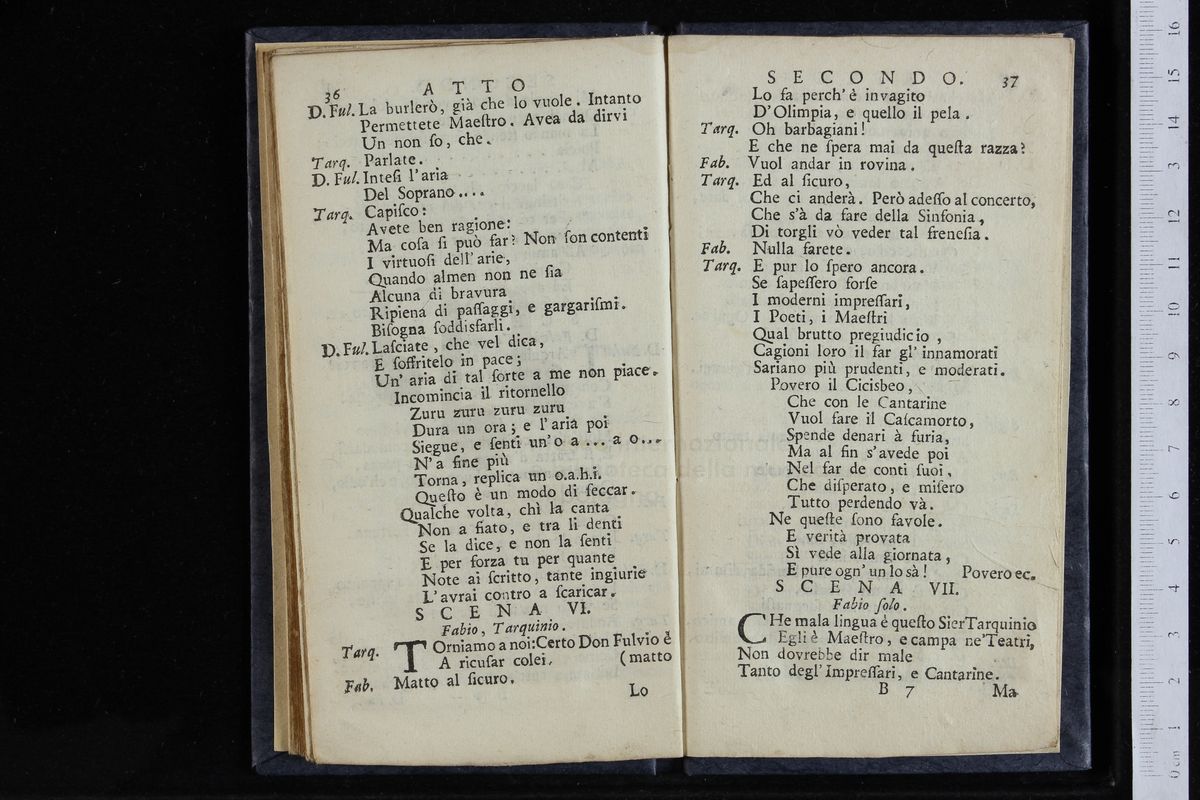 36 ATTO
D. Ful. La burlerò, già che lo vuole. Intanto
Permettete Maeſtro. Avea da dirvi
Un non ſo, che.
Tarq. Parlate.
D. Ful. Inteſi l'aria
Del Soprano....
Tarq. Capiſco:
Avete ben ragione:
Ma coſa ſi può far? Non ſon contenti
I virtuoſi dell'arie,
Quando almen non ne ſia
Alcuna di bravura
Ripiena di paſſaggi, e gargariſmi.
Biſogna ſoddisfarli.
D. Ful. Laſciate, che vel dica,
E ſoffritelo in pace;
Un' aria di tal ſorte a me non piace.
Incomincia il ritornello
Zuru zuru zuru zuru
Dura un ora; e l'aria poi
Siegue, e ſenti un'o a ... a o...
N'a fine più
Torna, replica un o.a.h.i.
Queſto è un modo di ſeccar.
Qualche volta, chì la canta
Non a fiato, e tra li denti
Se la dice, e non la ſenti
E per forza tu per quante
Note ai ſcritto, tante ingiurie
L'avrai contro a ſcaricar.
SCENA VI.
Fabio, Tarquinio.
Tarq. TOrniamo a noi: Certo Don Fulvio è
A ricuſar colei. (matto
Fab. Matto al ſicuro.
Lo
SECONDO. 37
Lo fa perch' è invagito
D'Olimpia, e quello il pela.
Tarq. Oh barbagiani!
E che ne ſpera mai da queſta razza?
Fab. Vuol andar in rovina.
Tarq. Ed al ſicuro,
Che ci anderà. Però adeſſo al concerto,
Che s'à da fare della Sinfonia,
Di torgli vò veder tal freneſia.
Fab. Nulla farete.
Tarq. E pur lo ſpero ancora.
Se ſapeſſero forſe
I moderni impreſſari,
I Poeti, i Maeſtri
Qual brutto pregiudicio,
Cagioni loro il far gl' innamorati
Sariano più prudenti, e moderati.
Povero il Cicisbeo,
Che con le Cantarine
Vuol fare il Caſcamorto,
Spende denari à furia,
Ma al fin s'avede poi
Nel far de conti ſuoi,
Che diſperato, e miſero
Tutto perdendo và.
Ne queſte ſono favole.
E verità provata
Sì vede alla giornata,
E pure ogn' un lo sà! Povero ec.
SCENA VII.
Fabio ſolo.
CHe mala lingua è queſto Sier Tarquinio
Egli è Maeſtro, e campa ne' Teatri,
Non dovrebbe dir male
Tanto degl' Impreſſari, e Cantarine.
B 7 Ma
0 cm 1 2 3 4 5 6 7 8 9 10 11 12 13 14 15 16